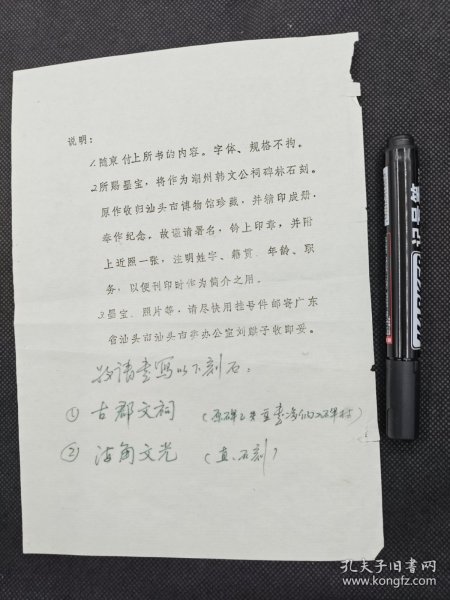 说明：
1.随柬付上所书的内容。字体、规格不拘。
2.所赐墨宝，将作为潮州韩文公祠碑林石刻。
原作收归汕头市博物馆珍藏，并精印成册，
奉作纪念，故谨请署名，钤上印章，并附
上近照一张，注明姓字、籍贯、年龄、职
务，以便刊印时作为简介之用。
3.墨宝、照片等，请尽快用挂号件邮寄广东
省汕头市汕头市委办公室刘麒子收即妥。
敬请书写以下刻石：
① 古郡文祠
② 海角文光 （直、石刻）
记号笔
孔夫子旧书网
www.kongfz.com